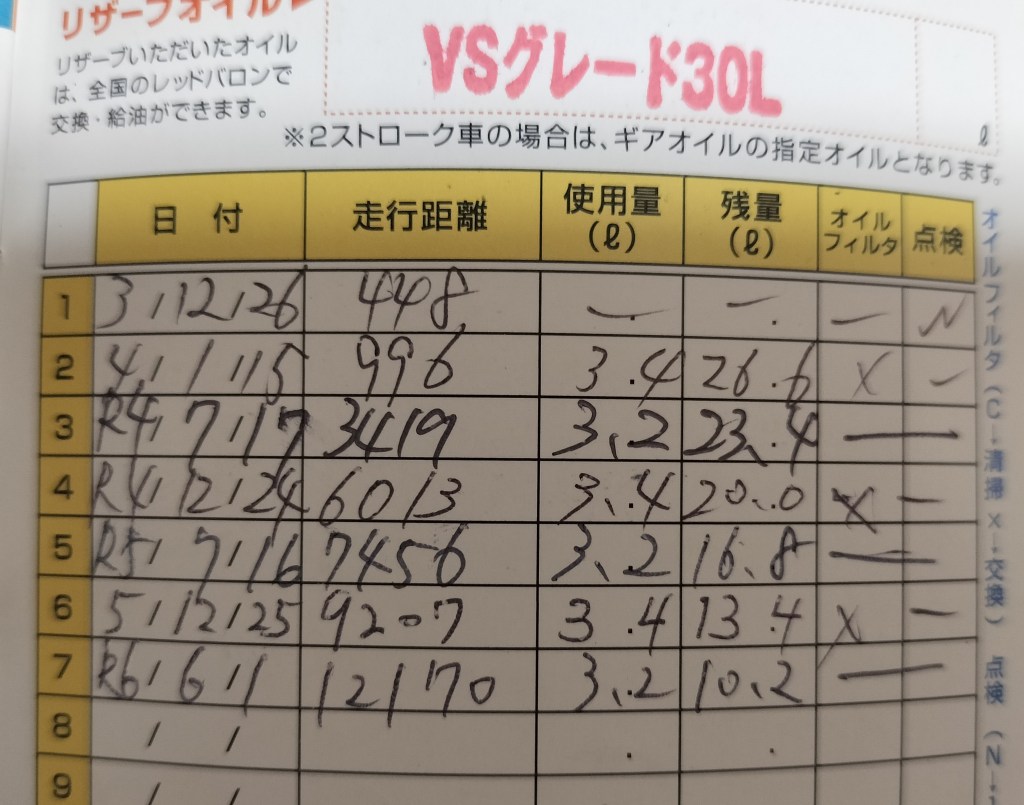 リザーブオイル▶
リザーブいただいたオイル
は、全国のレッドバロンで
交換・給油ができます。
VSグレード30L
ℓ
※2ストローク車の場合は、ギアオイルの指定オイルとなります。
日 付 走行距離 使用量(ℓ) 残量(ℓ) オイルフィルタ 点検
1 3,12,26 448 — — . — N
2 4,1,15 996 3.4 26.6 X —
3 R4,7,17 3419 3.2 23.4 —
4 R4,12,24 6013 3.4 20.0 X —
5 R5,7,16 7456 3.2 16.8 —
6 5,12,25 9207 3.4 13.4 X —
7 R6,6,11 12170 3.2 10.2 —
8 , , . .
9 , ,
オイルフィルタ(C→清掃 X→交換) 点検(N→